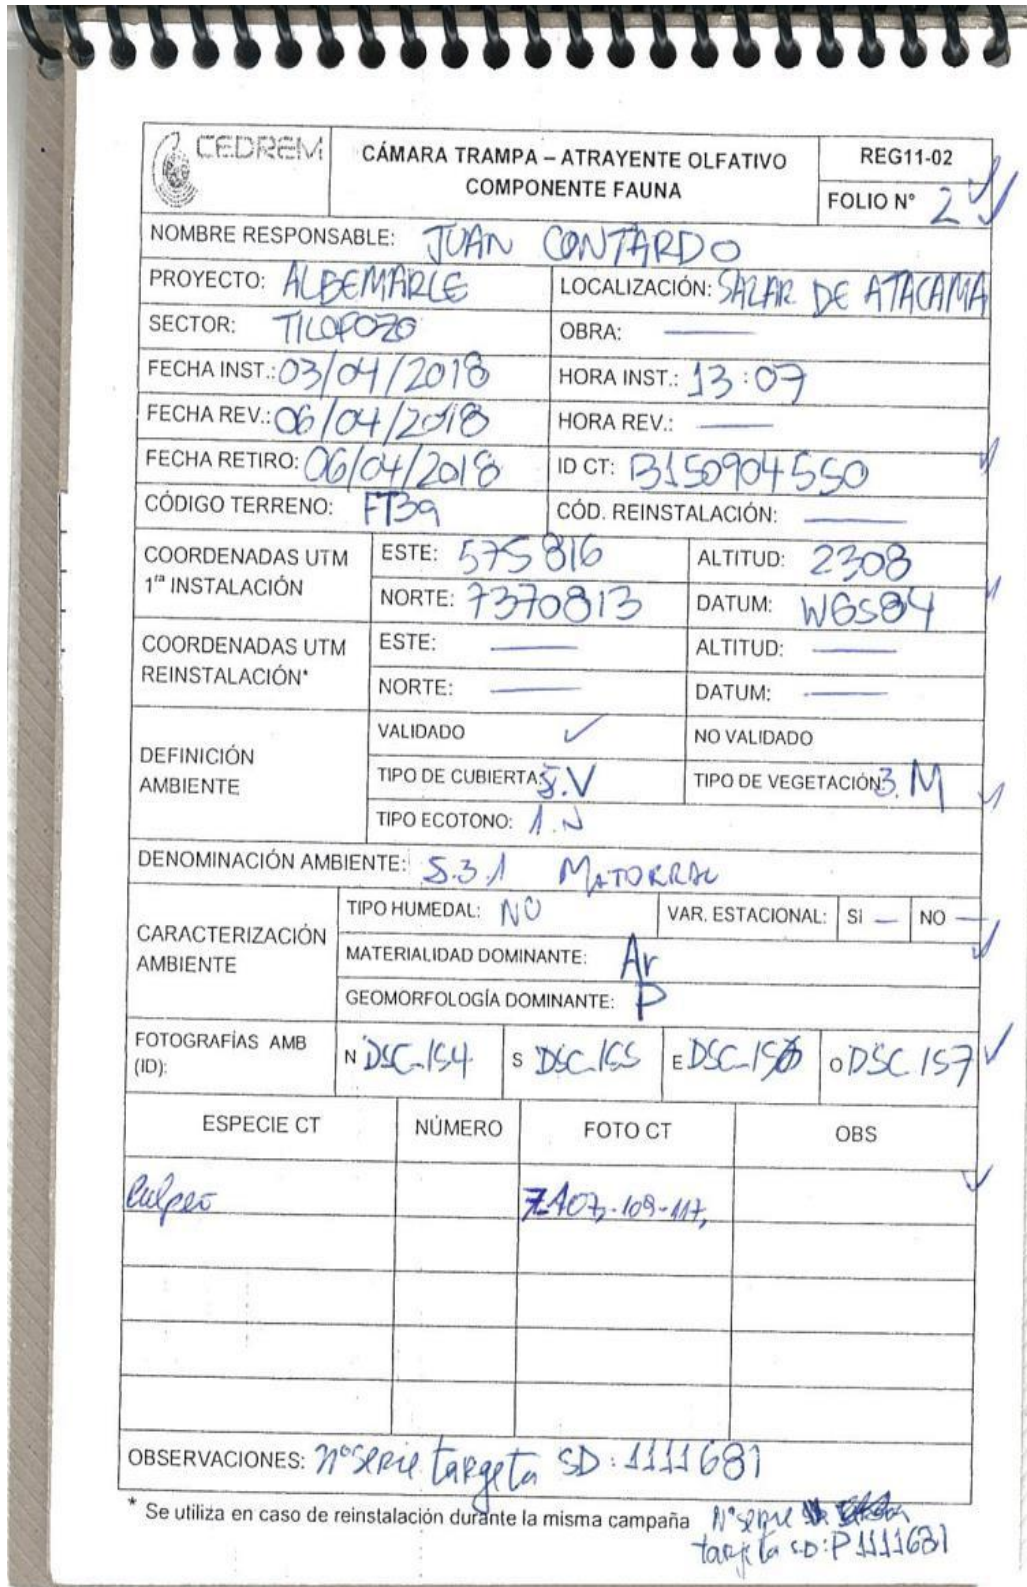 CEDREM
CÁMARA TRAMPA – ATRAYENTE OLFATIVO
COMPONENTE FAUNA
REG11-02
FOLIO N° 2
NOMBRE RESPONSABLE: JUAN CONTARDO
PROYECTO: ALBEMARLE LOCALIZACIÓN: SALAR DE ATACAMA
SECTOR: TILOPOZO OBRA: —
FECHA INST.: 03/04/2018 HORA INST.: 13:07
FECHA REV.: 06/04/2018 HORA REV.: —
FECHA RETIRO: 06/04/2018 ID CT: B150904550
CÓDIGO TERRENO: FT39 CÓD. REINSTALACIÓN: —
COORDENADAS UTM
1ra INSTALACIÓN
ESTE: 575816 ALTITUD: 2308
NORTE: 7370813 DATUM: WGS84
COORDENADAS UTM
REINSTALACIÓN*
ESTE: — ALTITUD: —
NORTE: — DATUM: —
DEFINICIÓN
AMBIENTE
VALIDADO ✓ NO VALIDADO
TIPO DE CUBIERTA: 5.V TIPO DE VEGETACIÓN: 3.M
TIPO ECOTONO: 1.N
DENOMINACIÓN AMBIENTE: 5.3.1 MATORRAL
CARACTERIZACIÓN
AMBIENTE
TIPO HUMEDAL: NO VAR. ESTACIONAL: SI — NO —
MATERIALIDAD DOMINANTE: Ar
GEOMORFOLOGÍA DOMINANTE: P
FOTOGRAFÍAS AMB
(ID):
N DSC-154 S DSC-155 E DSC-156 O DSC 157
ESPECIE CT NÚMERO FOTO CT OBS
Culpeo 107-109-117,
OBSERVACIONES: n° serie targeta SD: 1111681
* Se utiliza en caso de reinstalación durante la misma campaña
N° serie
tarjeta SD: P1111681